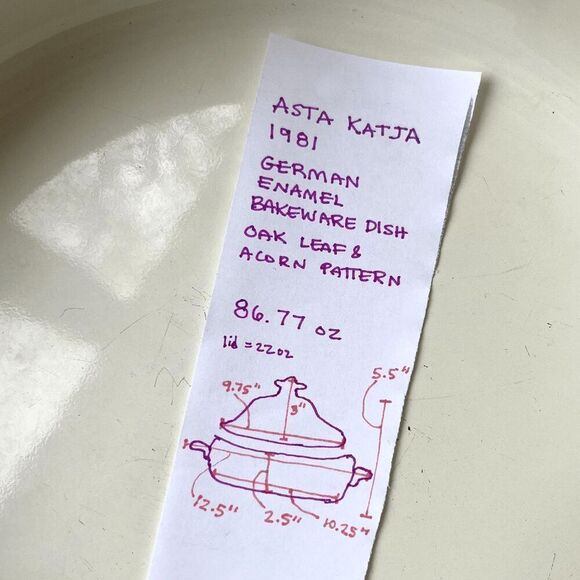 ASTA KATJA
1981
GERMAN
ENAMEL
BAKEWARE DISH
OAK LEAF &
ACORN PATTERN
86.77 oz
lid = 22oz
5.5"
9.75"
3"
12.5"
2.5"
10.25"